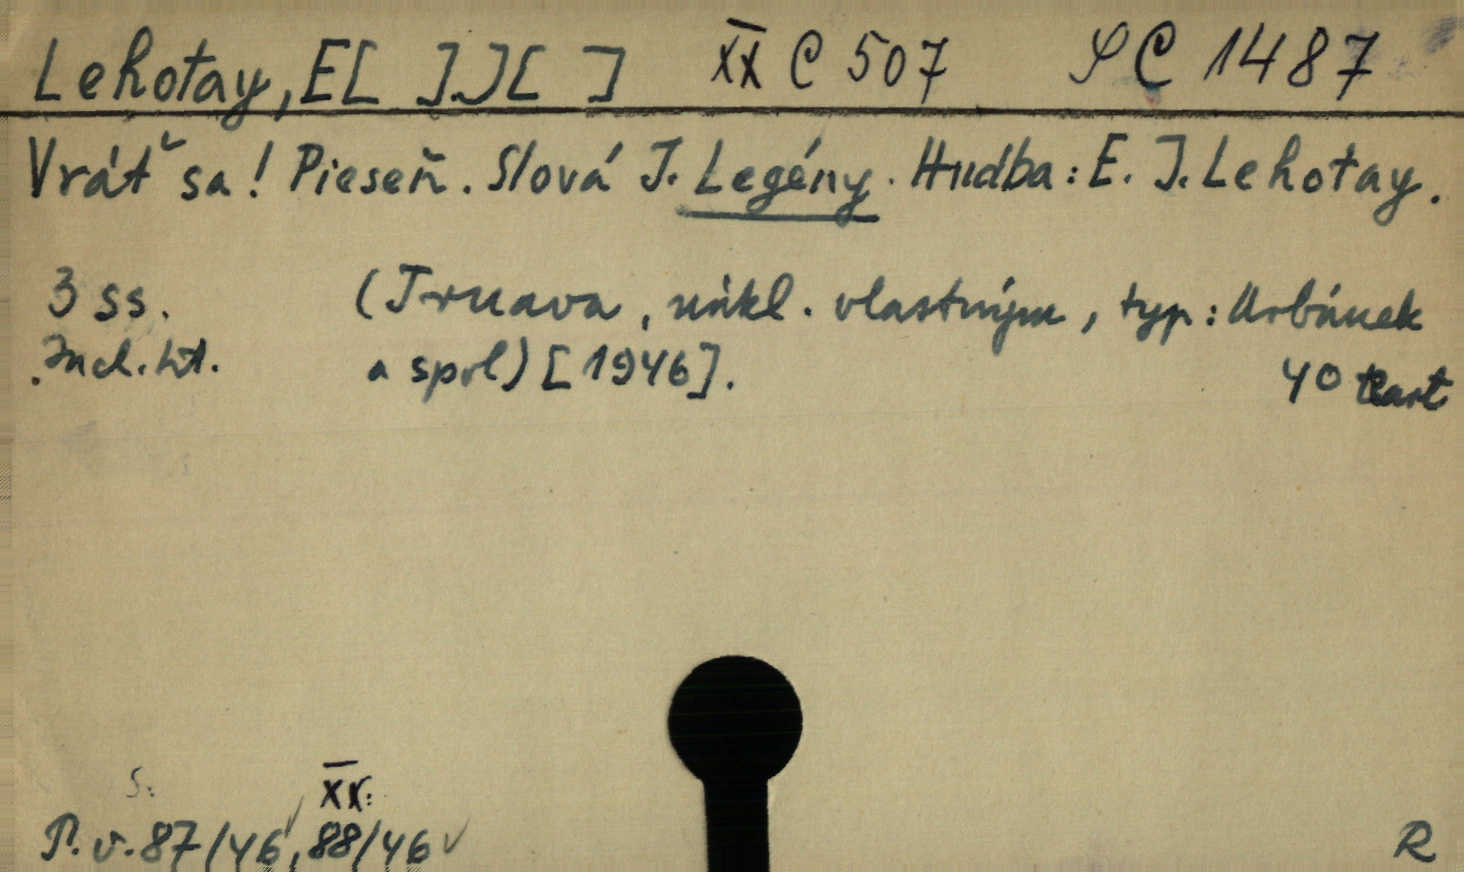 Lehotay, E[ ] J[ ] X̅X̅ C 507 S C 1487
Vráť sa! Pieseň. Slová J. Legény. Hudba: E. J. Lehotay.
3 ss. (Trnava, nákl. vlastným, typ: Urbánek
Incl. tit. a spol) [1946]. 4° cart
S: X̅X̅:
P. v. 87/46, 88/46
R